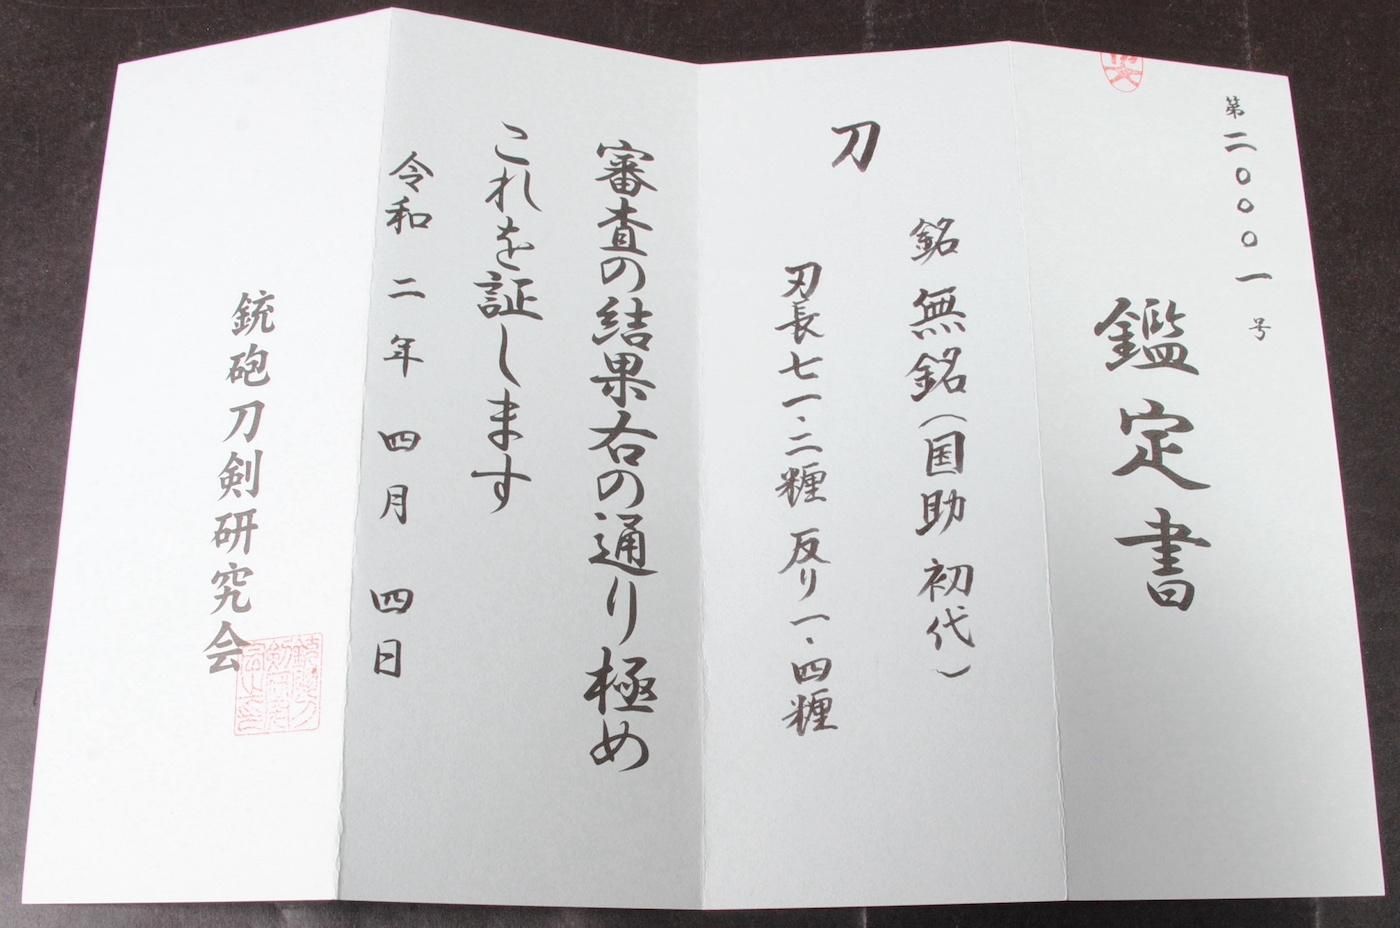 第二〇〇〇一号
鑑定書
刀
銘 無銘(国助 初代)
刃長七一・二糎 反り一・四糎
審査の結果右の通り極め
これを証します
令和二年四月四日
銃砲刀剣研究会